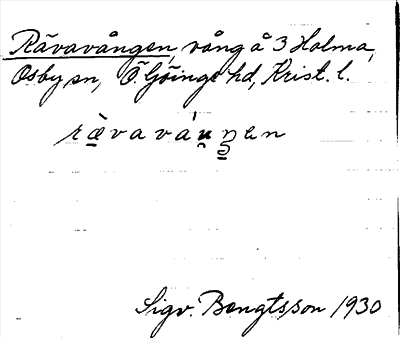 Rävavången, vång å 3 Holma,
Osby sn, Ö Göinge hd, Krist. l.
Sigv. Bengtsson 1930